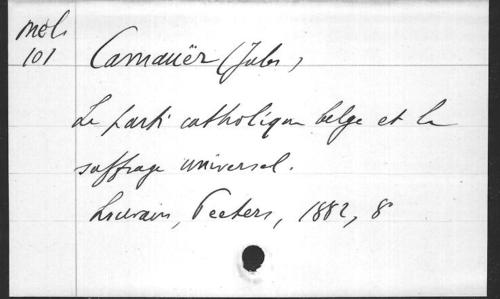 Mél.
101
Camauër (Jules)
Le parti catholique belge et le
suffrage universel.
Louvain, Peeters, 1882, 8°